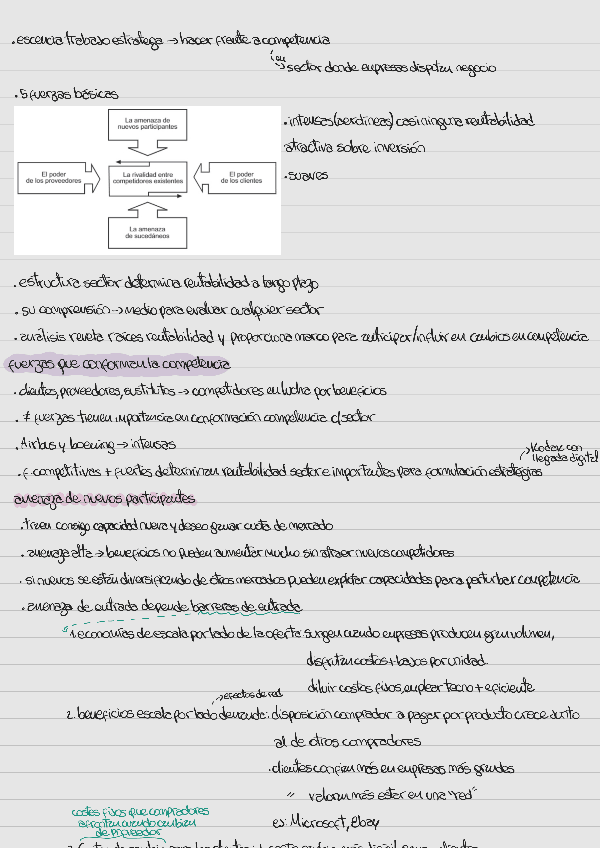 . escencia trabajo estratega → hacer frente a competencia
(en
↳ sector donde empresas disputan negocio
. 5 fuerzas básicas
La amenaza de
nuevos participantes
El poder
de los proveedores
La rivalidad entre
competidores existentes
El poder
de los clientes
La amenaza
de sucedáneos
. intensas (aerolíneas) casi ninguna rentabilidad
atractiva sobre inversión
. suaves
. estructura sector determina rentabilidad a largo plazo
. su comprensión → medio para evaluar cualquier sector
. análisis revela raíces rentabilidad y proporciona marco para anticipar/influir en cambios en competencia
fuerzas que conforman la competencia
. clientes, proveedores, sustitutos → competidores en lucha por beneficios
. ≠ fuerzas tienen importancia en conformación competencia c/sector
. Airbus y boeing → intensas
→ Kodak con
llegada digital
. f. competitivas + fuertes determinan rentabilidad sector e importantes para formulación estrategias
amenaza de nuevos participantes
. traen consigo capacidad nueva y deseo ganar cuota de mercado
. amenaza alta → beneficios no pueden aumentar mucho sin atraer nuevos competidores
. si nuevos se están diversificando de otros mercados pueden explotar capacidades para perturbar competencia
. amenaza de entrada depende barreras de entrada
1. economías de escala por lado de la oferta: surgen cuando empresas producen gran volumen,
disfrutan costos + bajos por unidad
diluir costos fijos, emplear tecno + eficiente
→ efectos de red
2. beneficios escala por lado demanda: disposición comprador a pagar por producto crece junto
al de otros compradores
. clientes confían más en empresas más grandes
" valoran más estar en una "red"
ej: Microsoft, Ebay
costes fijos que compradores
afrontan cuando cambian
de proveedor